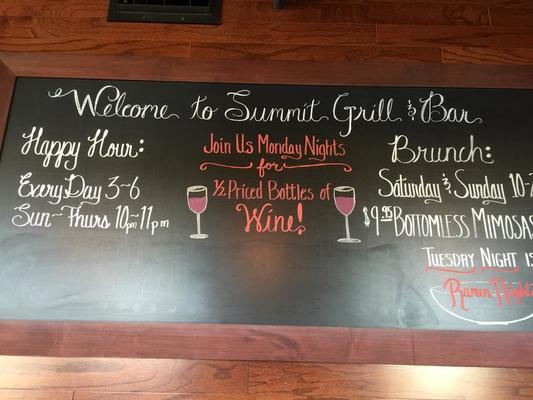 Welcome to Summit Grill & Bar
Happy Hour:
Every Day 3-6
Sun-Thurs 10pm-11pm
Join Us Monday Nights
for
½ Priced Bottles of
Wine!
Brunch:
Saturday & Sunday 10-
$9.95 Bottomless Mimosas
Tuesday Night is
Ramen Night